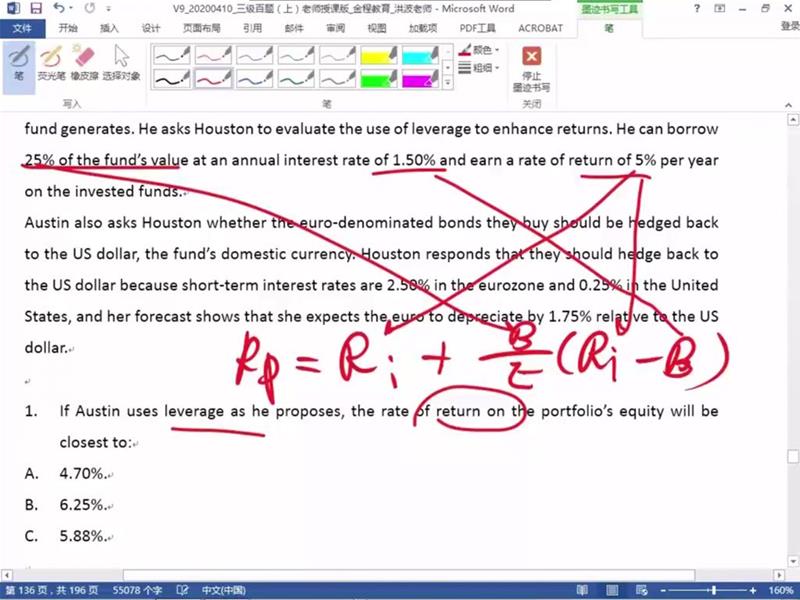 V9_20200410_三级百题（上）老师授课版_金程教育_洪波老师 - Microsoft Word
墨迹书写工具
文件 开始 插入 设计 页面布局 引用 邮件 审阅 视图 加载项 PDF工具 ACROBAT 笔 登录
笔 荧光笔 橡皮擦 选择对象
颜色
粗细
停止
墨迹书写
写入 笔 关闭
fund generates. He asks Houston to evaluate the use of leverage to enhance returns. He can borrow
25% of the fund's value at an annual interest rate of 1.50% and earn a rate of return of 5% per year
on the invested funds.
Austin also asks Houston whether the euro-denominated bonds they buy should be hedged back
to the US dollar, the fund's domestic currency. Houston responds that they should hedge back to
the US dollar because short-term interest rates are 2.50% in the eurozone and 0.25% in the United
States, and her forecast shows that she expects the euro to depreciate by 1.75% relative to the US
dollar.
Rp = Ri + B/E (Ri - B)
1. If Austin uses leverage as he proposes, the rate of return on the portfolio's equity will be
closest to:
A. 4.70%.
B. 6.25%.
C. 5.88%.
第 136 页，共 196 页 55078 个字 中文(中国) 160%